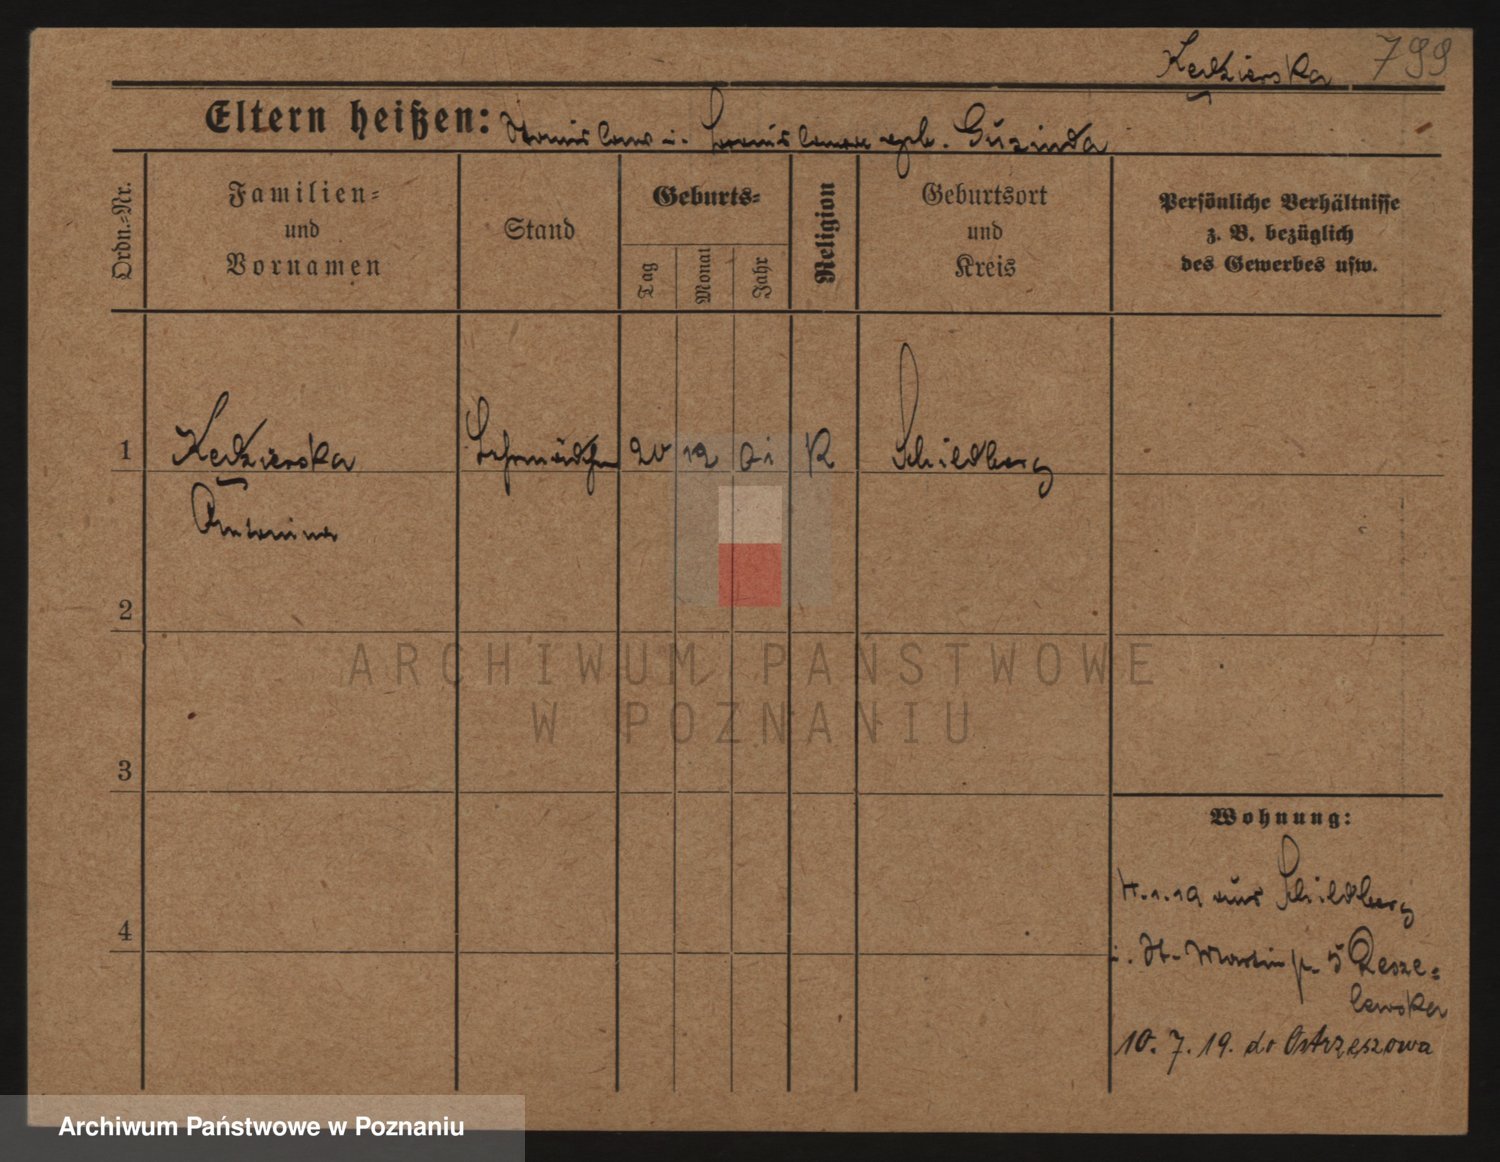 Kedzierska 799
Eltern heißen: Stanislaus u. Stanislawa geb. Guzinda
Ordn.-Nr.
Familien-
und
Vornamen
Stand
Geburts-
Tag
Monat
Jahr
Religion
Geburtsort
und
Kreis
Persönliche Verhältnisse
z. B. bezüglich
des Gewerbes usw.
1 Kedzierska Lehrmädchen 20 12 01 K Schildberg
Antonina
2
3
4
Wohnung:
aus Schildberg
St. Martin 5
lewska
10. 7. 19. do Ostrzeszowa
ARCHIWUM PAŃSTWOWE
W POZNANIU
Archiwum Państwowe w Poznaniu